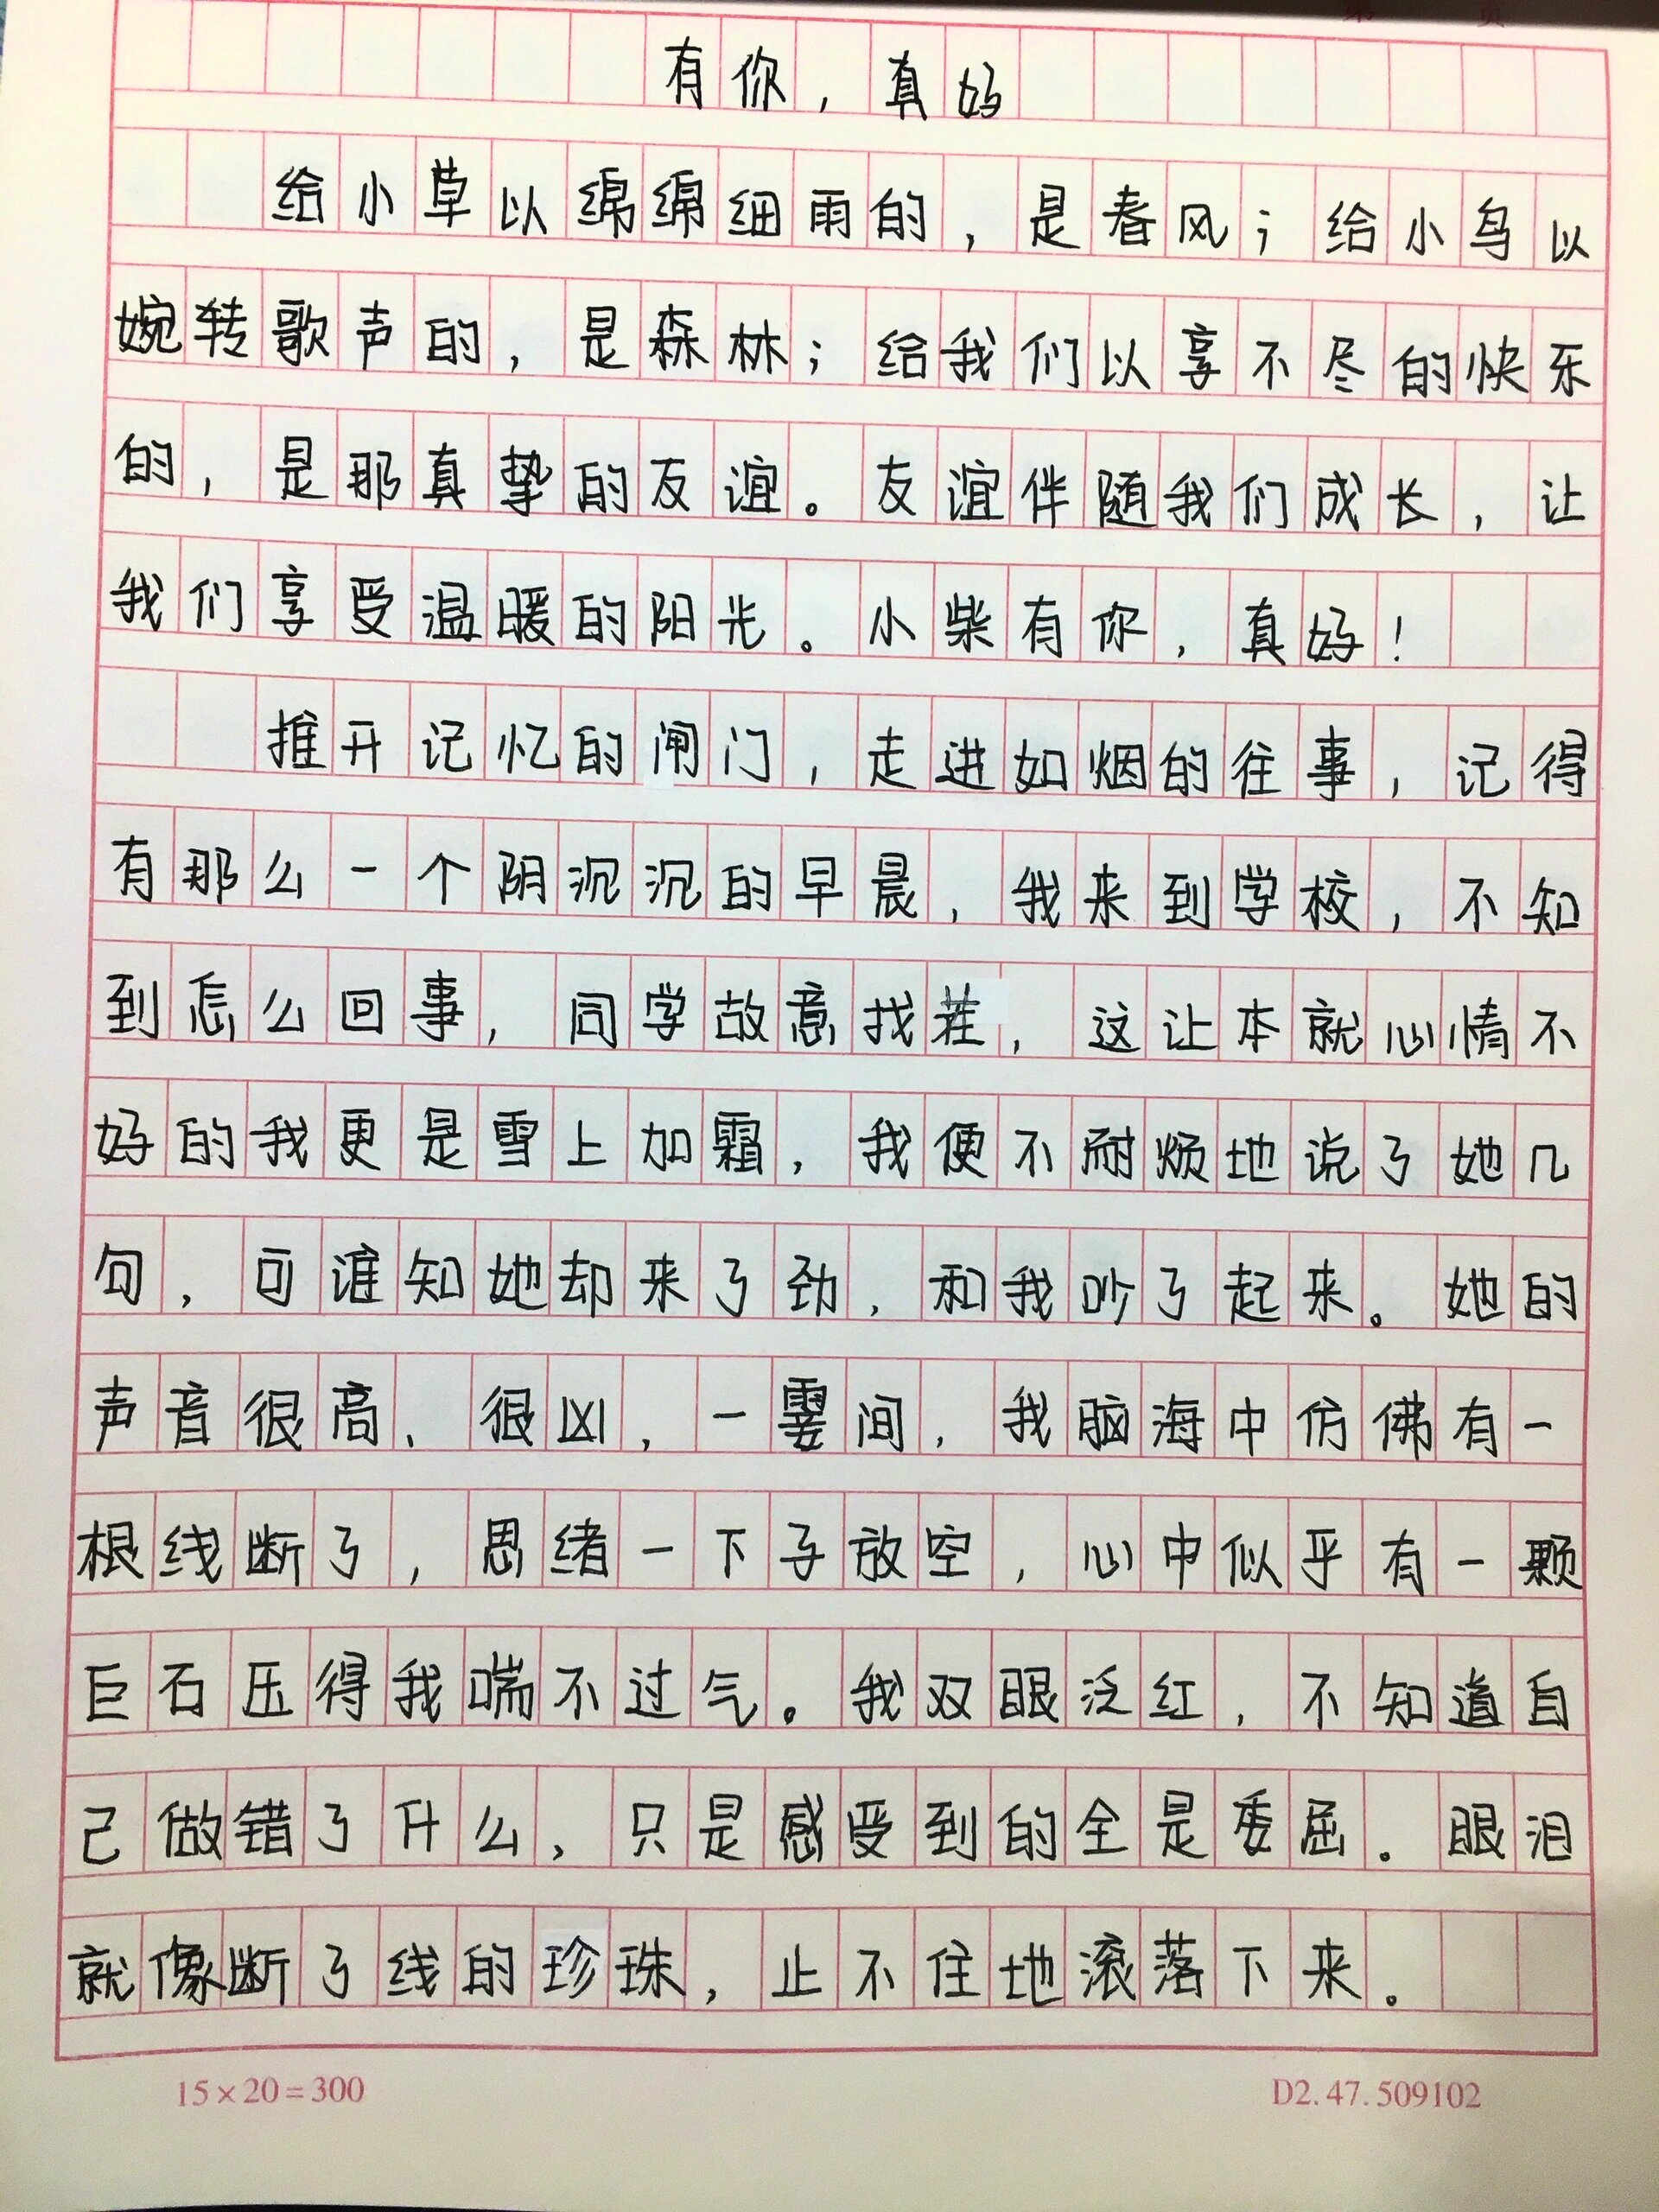 有你，真好
给小草以绵绵细雨的，是春风；给小鸟以
婉转歌声的，是森林；给我们以享不尽的快乐
的，是那真挚的友谊。友谊伴随我们成长，让
我们享受温暖的阳光。小柴有你，真好！
推开记忆的闸门，走进如烟的往事，记得
有那么一个阴沉沉的早晨，我来到学校，不知
到怎么回事，同学故意找茬，这让本就心情不
好的我更是雪上加霜，我便不耐烦地说了她几
句，可谁知她却来了劲，和我吵了起来。她的
声音很高、很凶，一霎间，我脑海中仿佛有一
根线断了，思绪一下子放空，心中似乎有一颗
巨石压得我喘不过气。我双眼泛红，不知道自
己做错了什么，只是感受到的全是委屈。眼泪
就像断了线的珍珠，止不住地滚落下来。
15×20=300
D2.47.509102